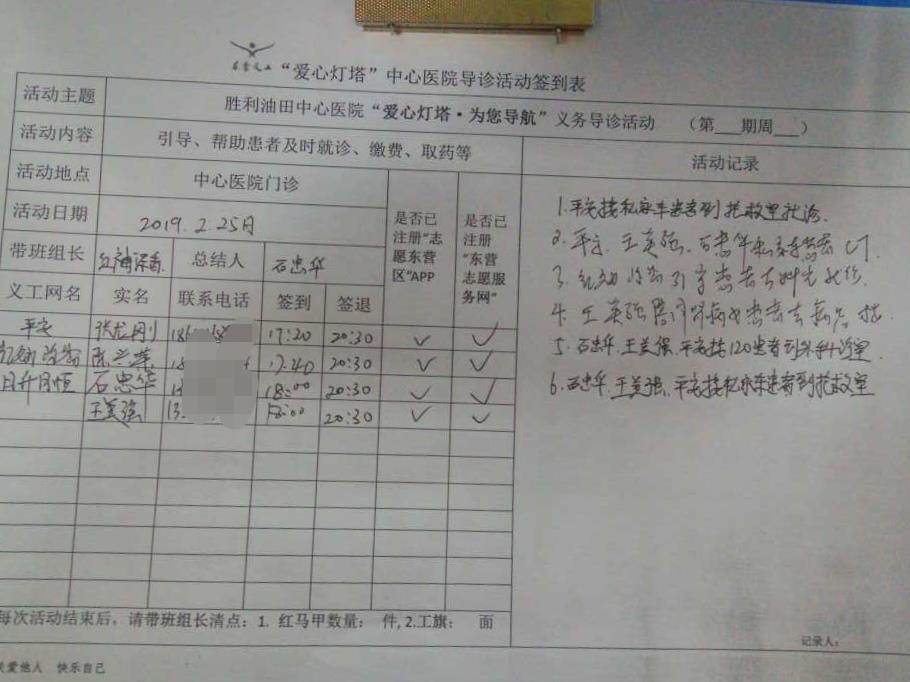 “爱心灯塔”中心医院导诊活动签到表
活动主题 胜利油田中心医院“爱心灯塔·为您导航”义务导诊活动 （第___期周___）
活动内容 引导、帮助患者及时就诊、缴费、取药等 活动记录
活动地点 中心医院门诊 是否已注册“志愿东营区”APP 是否已注册“东营志愿服务网”
活动日期 2019.2.25日
带班组长 总结人 石忠华
义工网名 实名 联系电话 签到 签退
平安 张龙刚 17:20 20:30 ✓ ✓
17:40 20:30 ✓ ✓
日升月恒 石忠华 18:00 20:30 ✓ ✓
王美强 13 18:00 20:30 ✓ ✓
1.平安接私家车患者到抢救室就诊.
2.平安、王美强、石忠华 CT
3. 引导患者去
4.王美强陪同 患者去
5.石忠华、王美强、平安接120患者到外科诊室
6.石忠华、王美强、平安接私家车患者到抢救室
每次活动结束后，请带班组长清点：1. 红马甲数量： 件，2.工旗： 面
记录人：
关爱他人 快乐自己